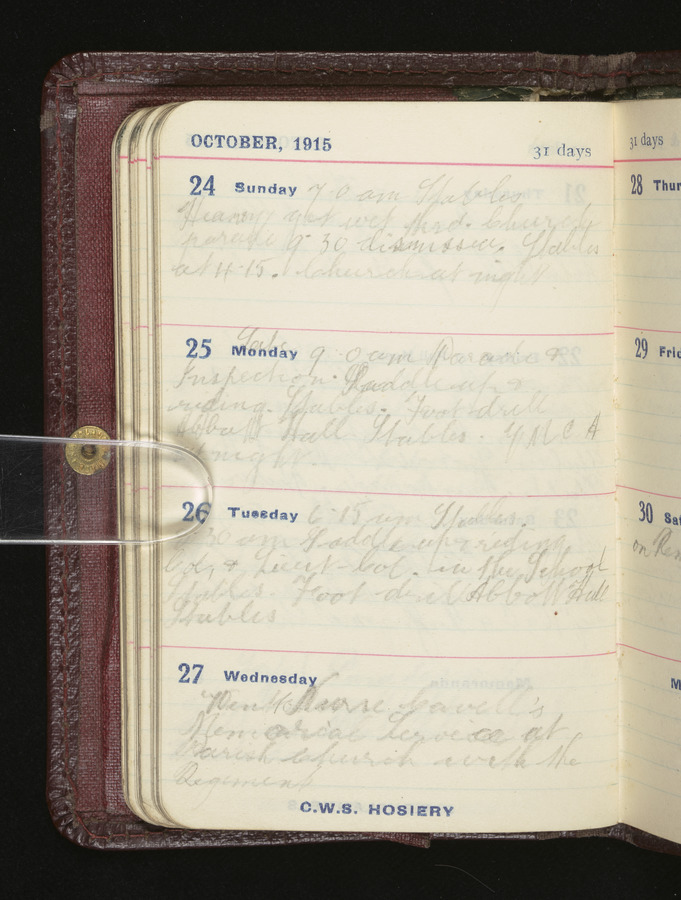 OCTOBER, 1915 31 days
24 Sunday 7-0 am Stables
got wet thro. Church
parade 9-30 dismissed. Stables
at 4-15. Church at night
25 Monday 9-0 am Parade &
Inspection. Saddle up &
riding. Stables. Foot drill
Abbott Hall Stables. Y M C A
at night.
26 Tuesday 6-15 am Stables.
30 am Saddle up riding
Col. & Lieut-Col. in the School
Stables. Foot drill Abbott Hall
Stables
27 Wednesday
Went Nurse Cavell's
Memorial Service at
Parish Church with the
Regiment
C.W.S. HOSIERY
31 days
28 Thur
29 Frid
30 Sat
on
M